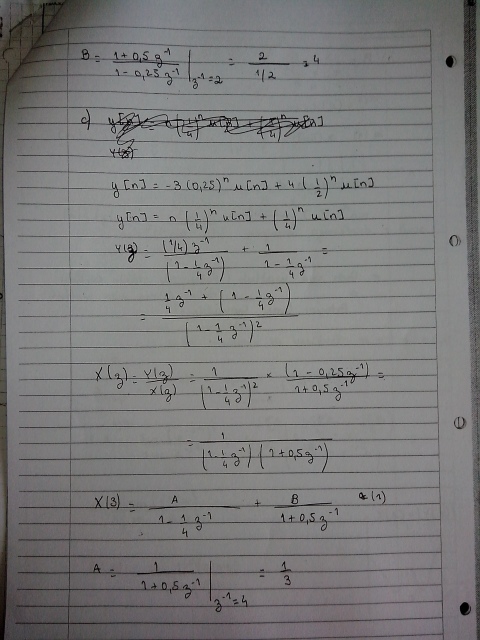 B = (1+0,5z⁻¹)/(1-0,25z⁻¹) |z⁻¹=2 = 2/(1/2) = 4
c)
y[n] = -3(0,25)ⁿ u[n] + 4(1/2)ⁿ u[n]
y[n] = n(1/4)ⁿ u[n] + (1/4)ⁿ u[n]
Y(z) = ((1/4)z⁻¹)/(1-1/4z⁻¹) + 1/(1-1/4z⁻¹) =
= (1/4z⁻¹ + (1-1/4z⁻¹))/(1-1/4z⁻¹)²
X(z) = Y(z)/X(z) = 1/(1-1/4z⁻¹)² × (1-0,25z⁻¹)/(1+0,5z⁻¹) =
= 1/((1-1/4z⁻¹)(1+0,5z⁻¹))
X(z) = A/(1-1/4z⁻¹) + B/(1+0,5z⁻¹) (1)
A = 1/(1+0,5z⁻¹) |z⁻¹=4 = 1/3